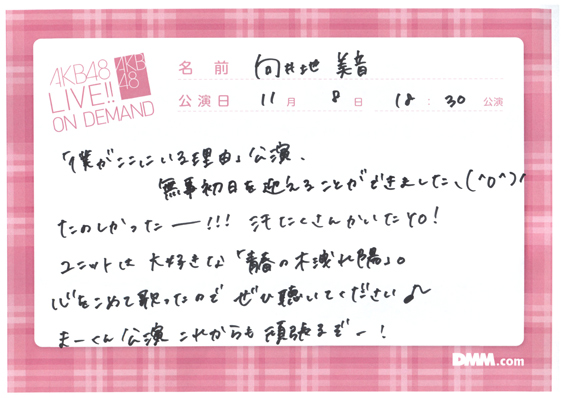 AKB48
LIVE!!
ON DEMAND
AKB
48
名 前 向井地 美音
公演日 11月 8日 18:30 公演
「僕がここにいる理由」公演、
無事初日を迎えることができました、(^o^)^
たのしかったー!!! 汗たくさんかいたYO!
ユニットは 大好きな「青春の木洩れ陽」。
心をこめて歌ったので ぜひ聴いてください♪
まーくん公演 これからも 頑張るぞー!
DMM.com